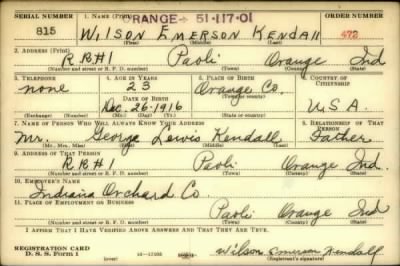 ORANGE- 51-117-01
SERIAL NUMBER 1. NAME (Print) ORDER NUMBER
815 WILSON EMERSON KENDALL 472
2. ADDRESS (Print)
R R #1 Paoli Orange Ind
(Number and street or R. F. D. number) (Town) (County) (State)
3. TELEPHONE 4. AGE IN YEARS 5. PLACE OF BIRTH 6. COUNTRY OF CITIZENSHIP
none 23 Orange Co.
DATE OF BIRTH (Town or county)
Dec. 26-1916 Ind U.S.A.
(Exchange) (Number) (Mo.) (Day) (Yr.) (State or country)
7. NAME OF PERSON WHO WILL ALWAYS KNOW YOUR ADDRESS 8. RELATIONSHIP OF THAT PERSON
Mr. George Lewis Kendall Father
(Mr., Mrs., Miss) (First) (Middle) (Last)
9. ADDRESS OF THAT PERSON
RR #1 Paoli Orange Ind.
(Number and street or R. F. D. number) (Town) (County) (State)
10. EMPLOYER'S NAME
Indiana Orchard Co.
11. PLACE OF EMPLOYMENT OR BUSINESS
Paoli Orange Ind
(Number and street or R. F. D. number) (Town) (County) (State)
I AFFIRM THAT I HAVE VERIFIED ABOVE ANSWERS AND THAT THEY ARE TRUE.
REGISTRATION CARD
D. S. S. Form 1 (over) Wilson Emerson Kendall
(Registrant's signature)